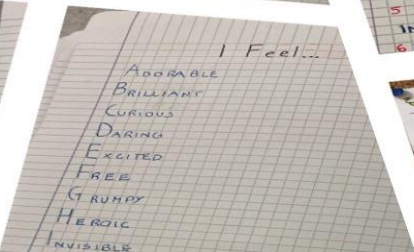 I Feel...
ADORABLE
BRILLIANT
CURIOUS
DARING
EXCITED
FREE
GRUMPY
HEROIC
INVISIBLE
5
6